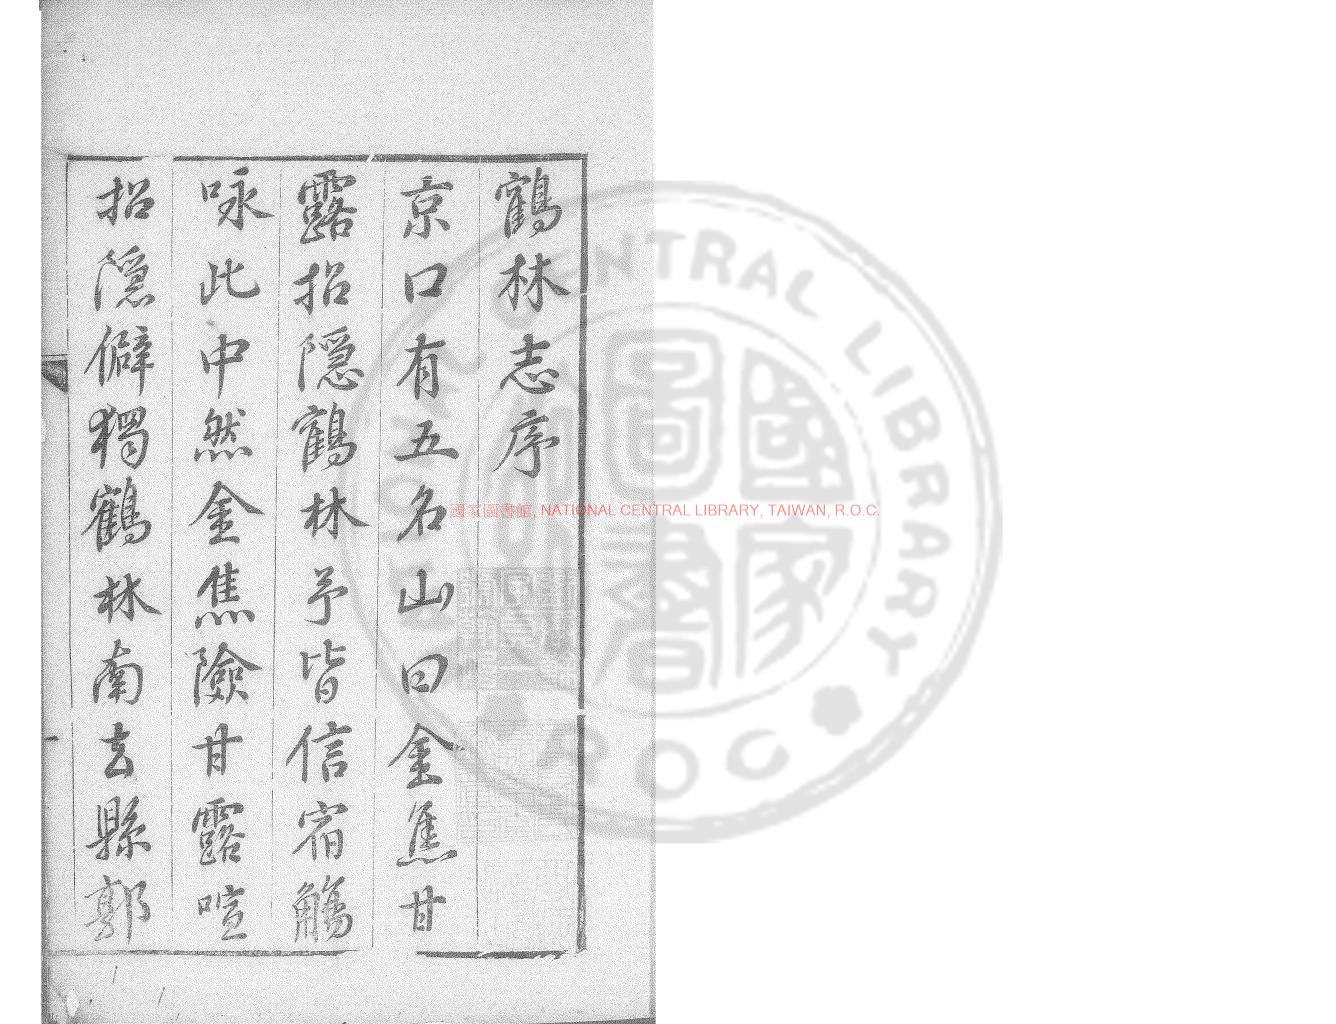 鶴林志序
京口有五名山曰金焦甘
露招隱鶴林予皆信宿觴
咏此中然金焦險甘露喧
招隱僻獨鶴林南去縣郭
國家圖書館, NATIONAL CENTRAL LIBRARY, TAIWAN, R.O.C.